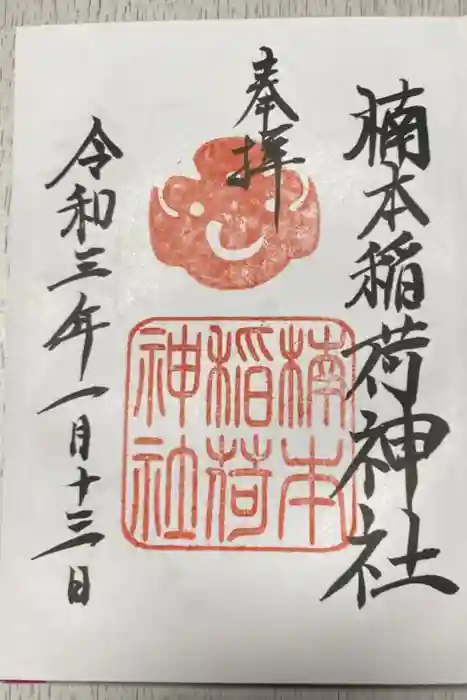 楠本稲荷神社
奉拝
楠本
稲荷
神社
令和三年一月十三日